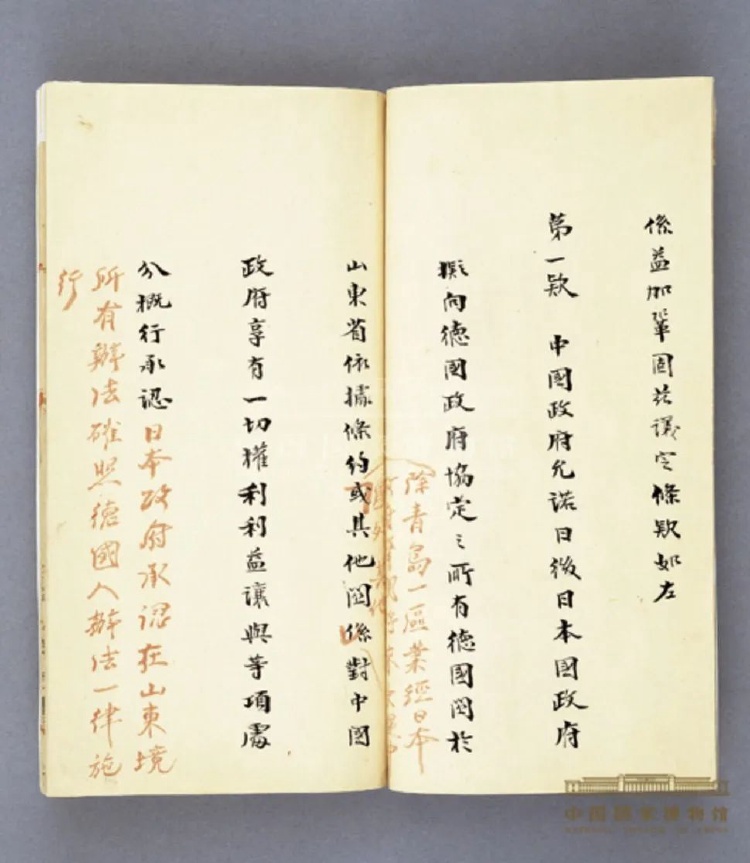 係益加鞏固茲議定條欵如左
第一欵 中國政府允諾日後日本國政府
擬向德國政府協定之所有德國關於
除青島一區業經日本
山東省依據條約或其他關係對中國
政府享有一切權利利益讓與等項處
分概行承認日本政府承認在山東境
所有辦法確照德國人辦法一律施
行
中国国家博物馆